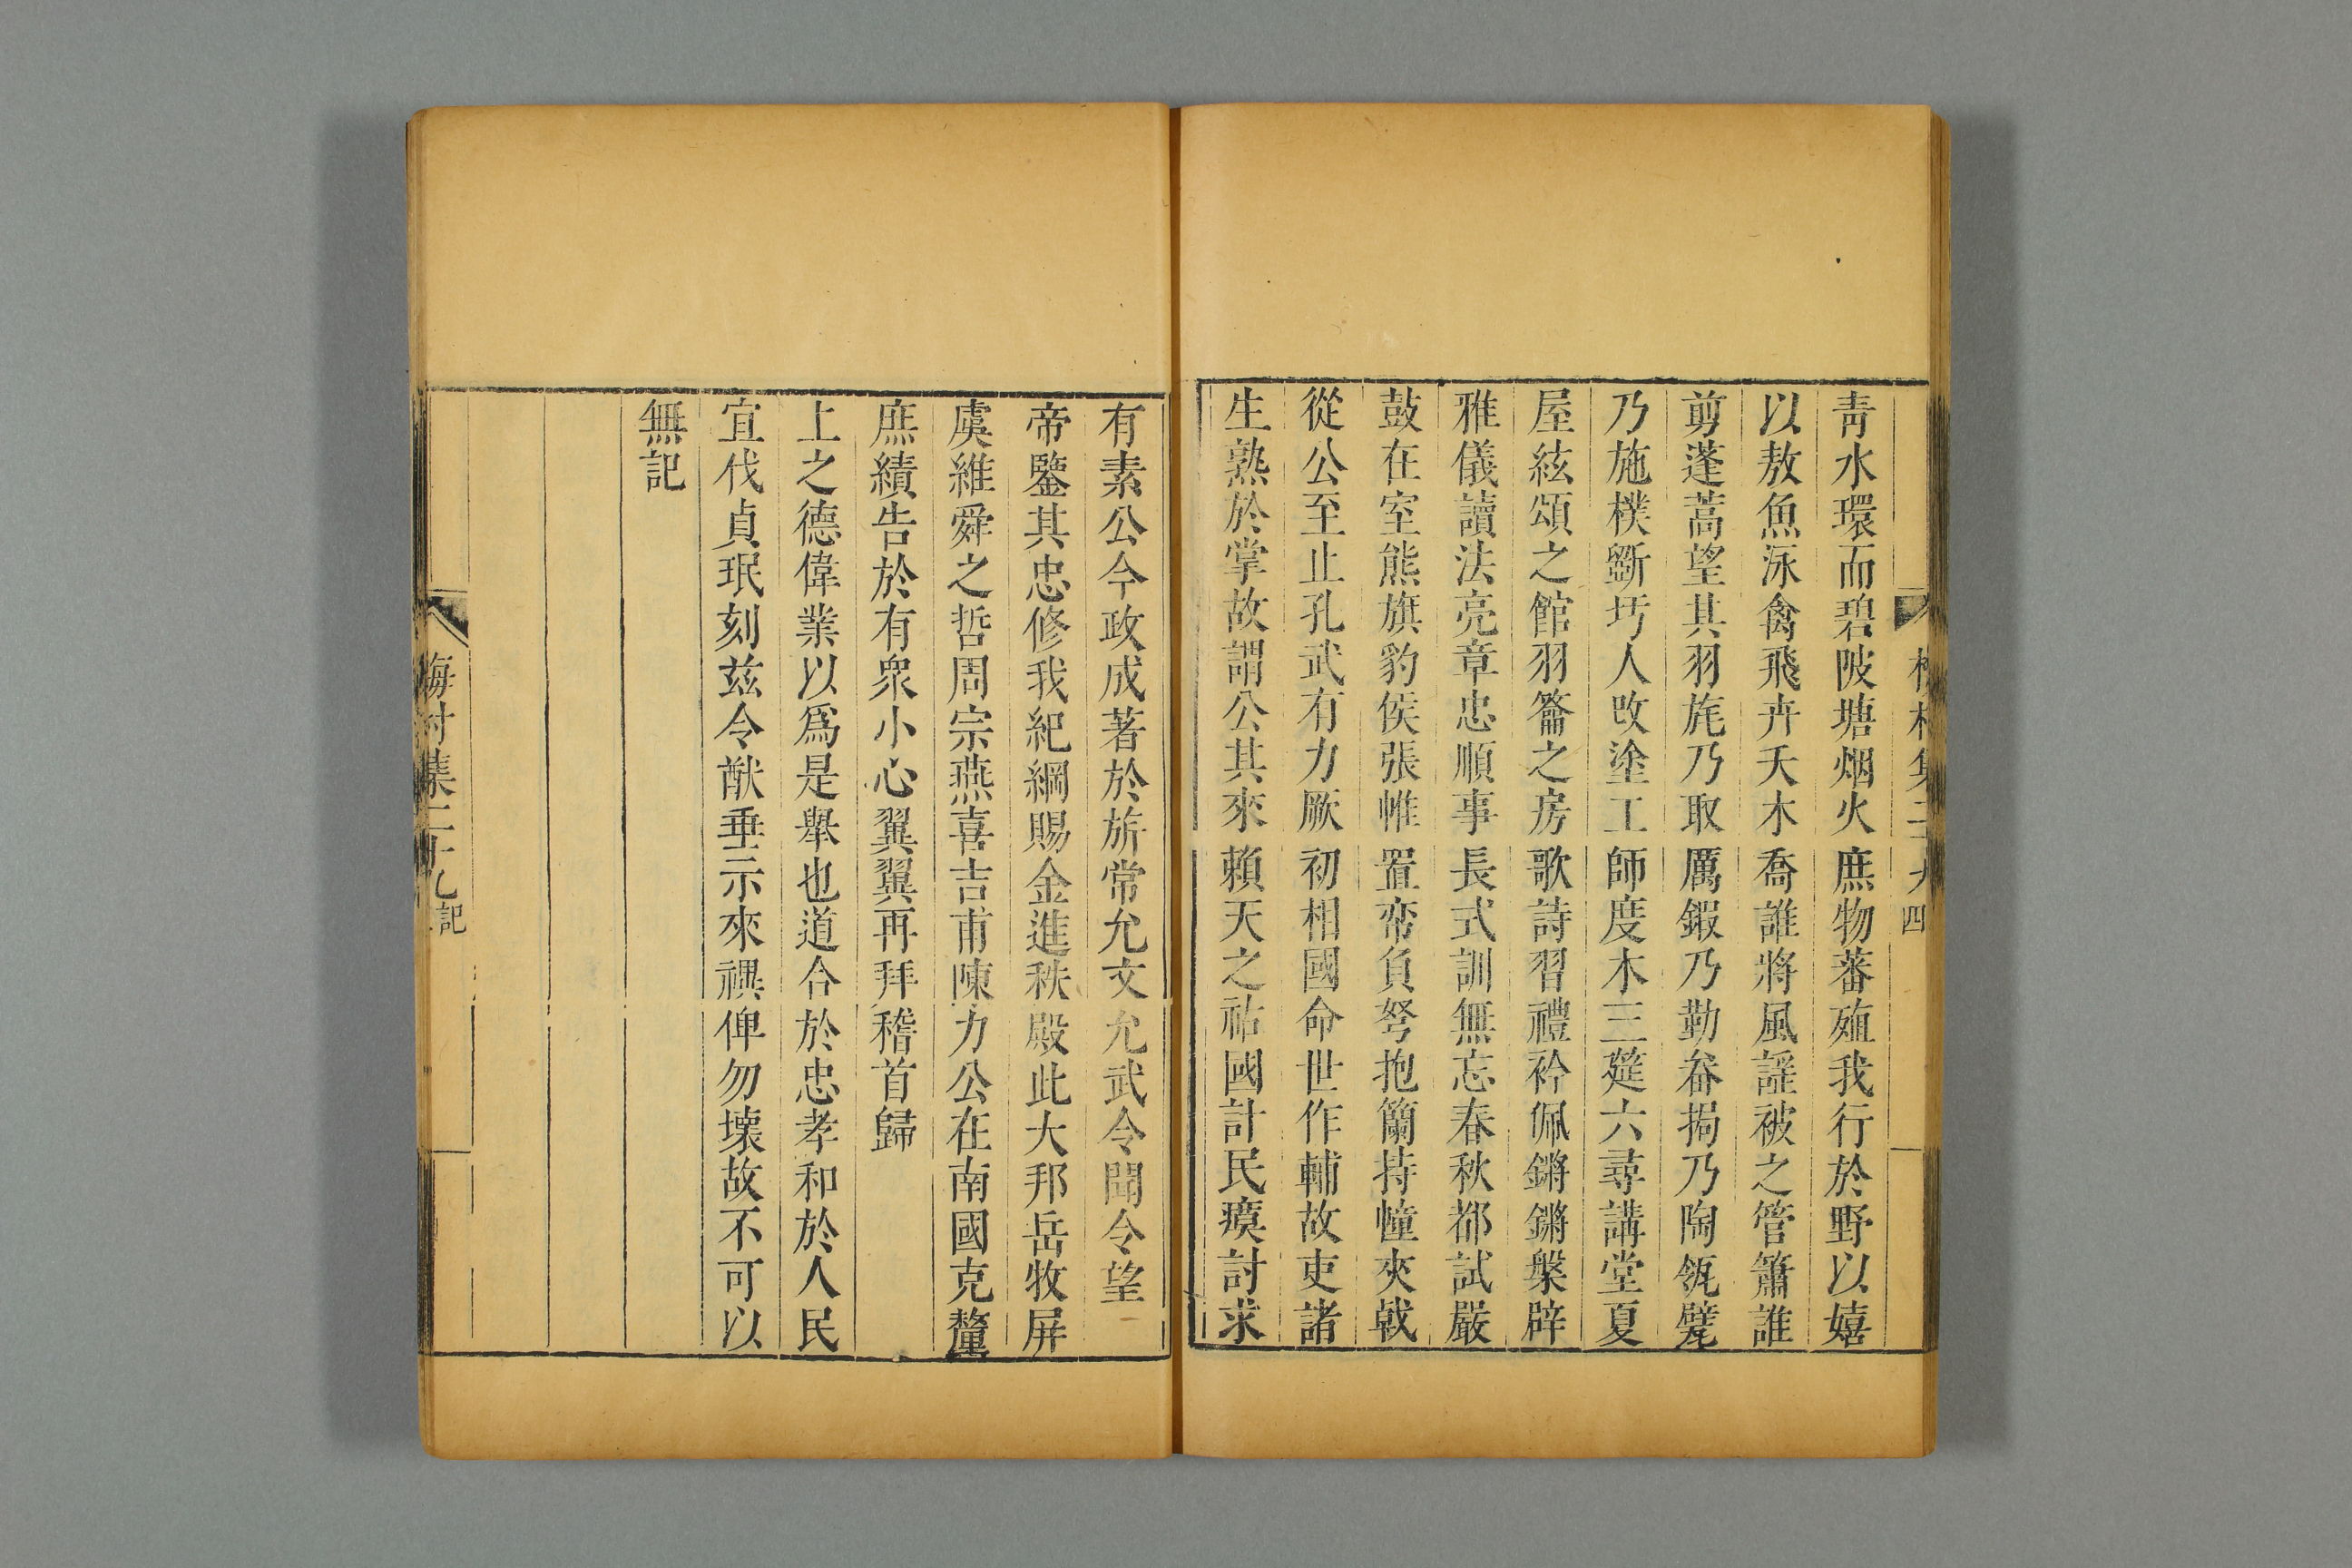 青水環而碧陂塘烟火庶物蕃殖我行於野以嬉
以敖魚泳禽飛卉夭木喬誰將風謡被之管簫誰
剪蓬蒿望其羽旄乃取厲鍜乃勤畚挶乃陶瓴甓
乃施樸斵圬人攺塗工師度木三筵六尋講堂夏
屋絃頌之館羽籥之房歌詩習禮衿佩鏘鏘槃辟
雅儀讀法亮章忠順事長式訓無忘春秋都試嚴
鼓在室熊旗豹侯張帷置帟負弩抱籣持幢夾戟
從公至止孔武有力厥初相國命世作輔故吏諸
生熟於掌故謂公其來賴天之祜國計民瘼討求
四
有素公今政成著於旂常允文允武令聞令望
帝鑒其忠修我紀綱賜金進秩殿此大邦岳牧屏
虞維舜之哲周宗燕喜吉甫陳力公在南國克釐
庶績告於有衆小心翼翼再拜稽首歸
上之德偉業以爲是舉也道合於忠孝和於人民
宜伐貞珉刻兹令猷垂示來禩俾勿壞故不可以
無記
梅村集二十九 記